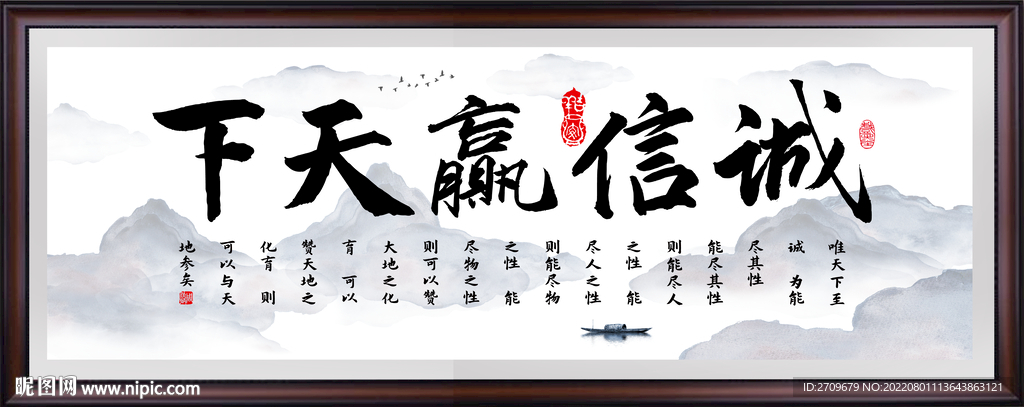 诚信赢天下
唯天下至
诚 为能
尽其性
能尽其性
则能尽人
之性 能
尽人之性
则能尽物
之性 能
尽物之性
则可以赞
大地之化
育 可以
赞天地之
化育 则
可以与天
地参矣
昵图网 www.nipic.com
ID:2709679 NO:20220801113643863121